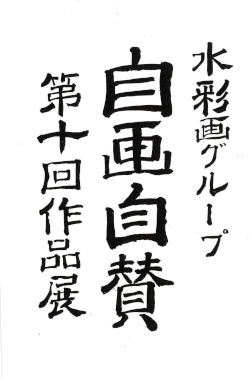 水彩画グループ
自画自賛
第十回作品展